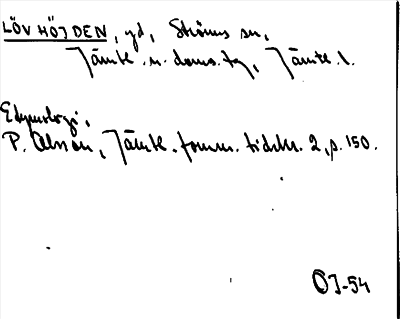 LÖVHÖJDEN, gd, Ströms sn,
Jämtl. n. doms. tg, Jämtl. l.
Etymologi,
P. Olsson, Jämtl. fornm. tidskr. 2, s. 150.
OJ-54